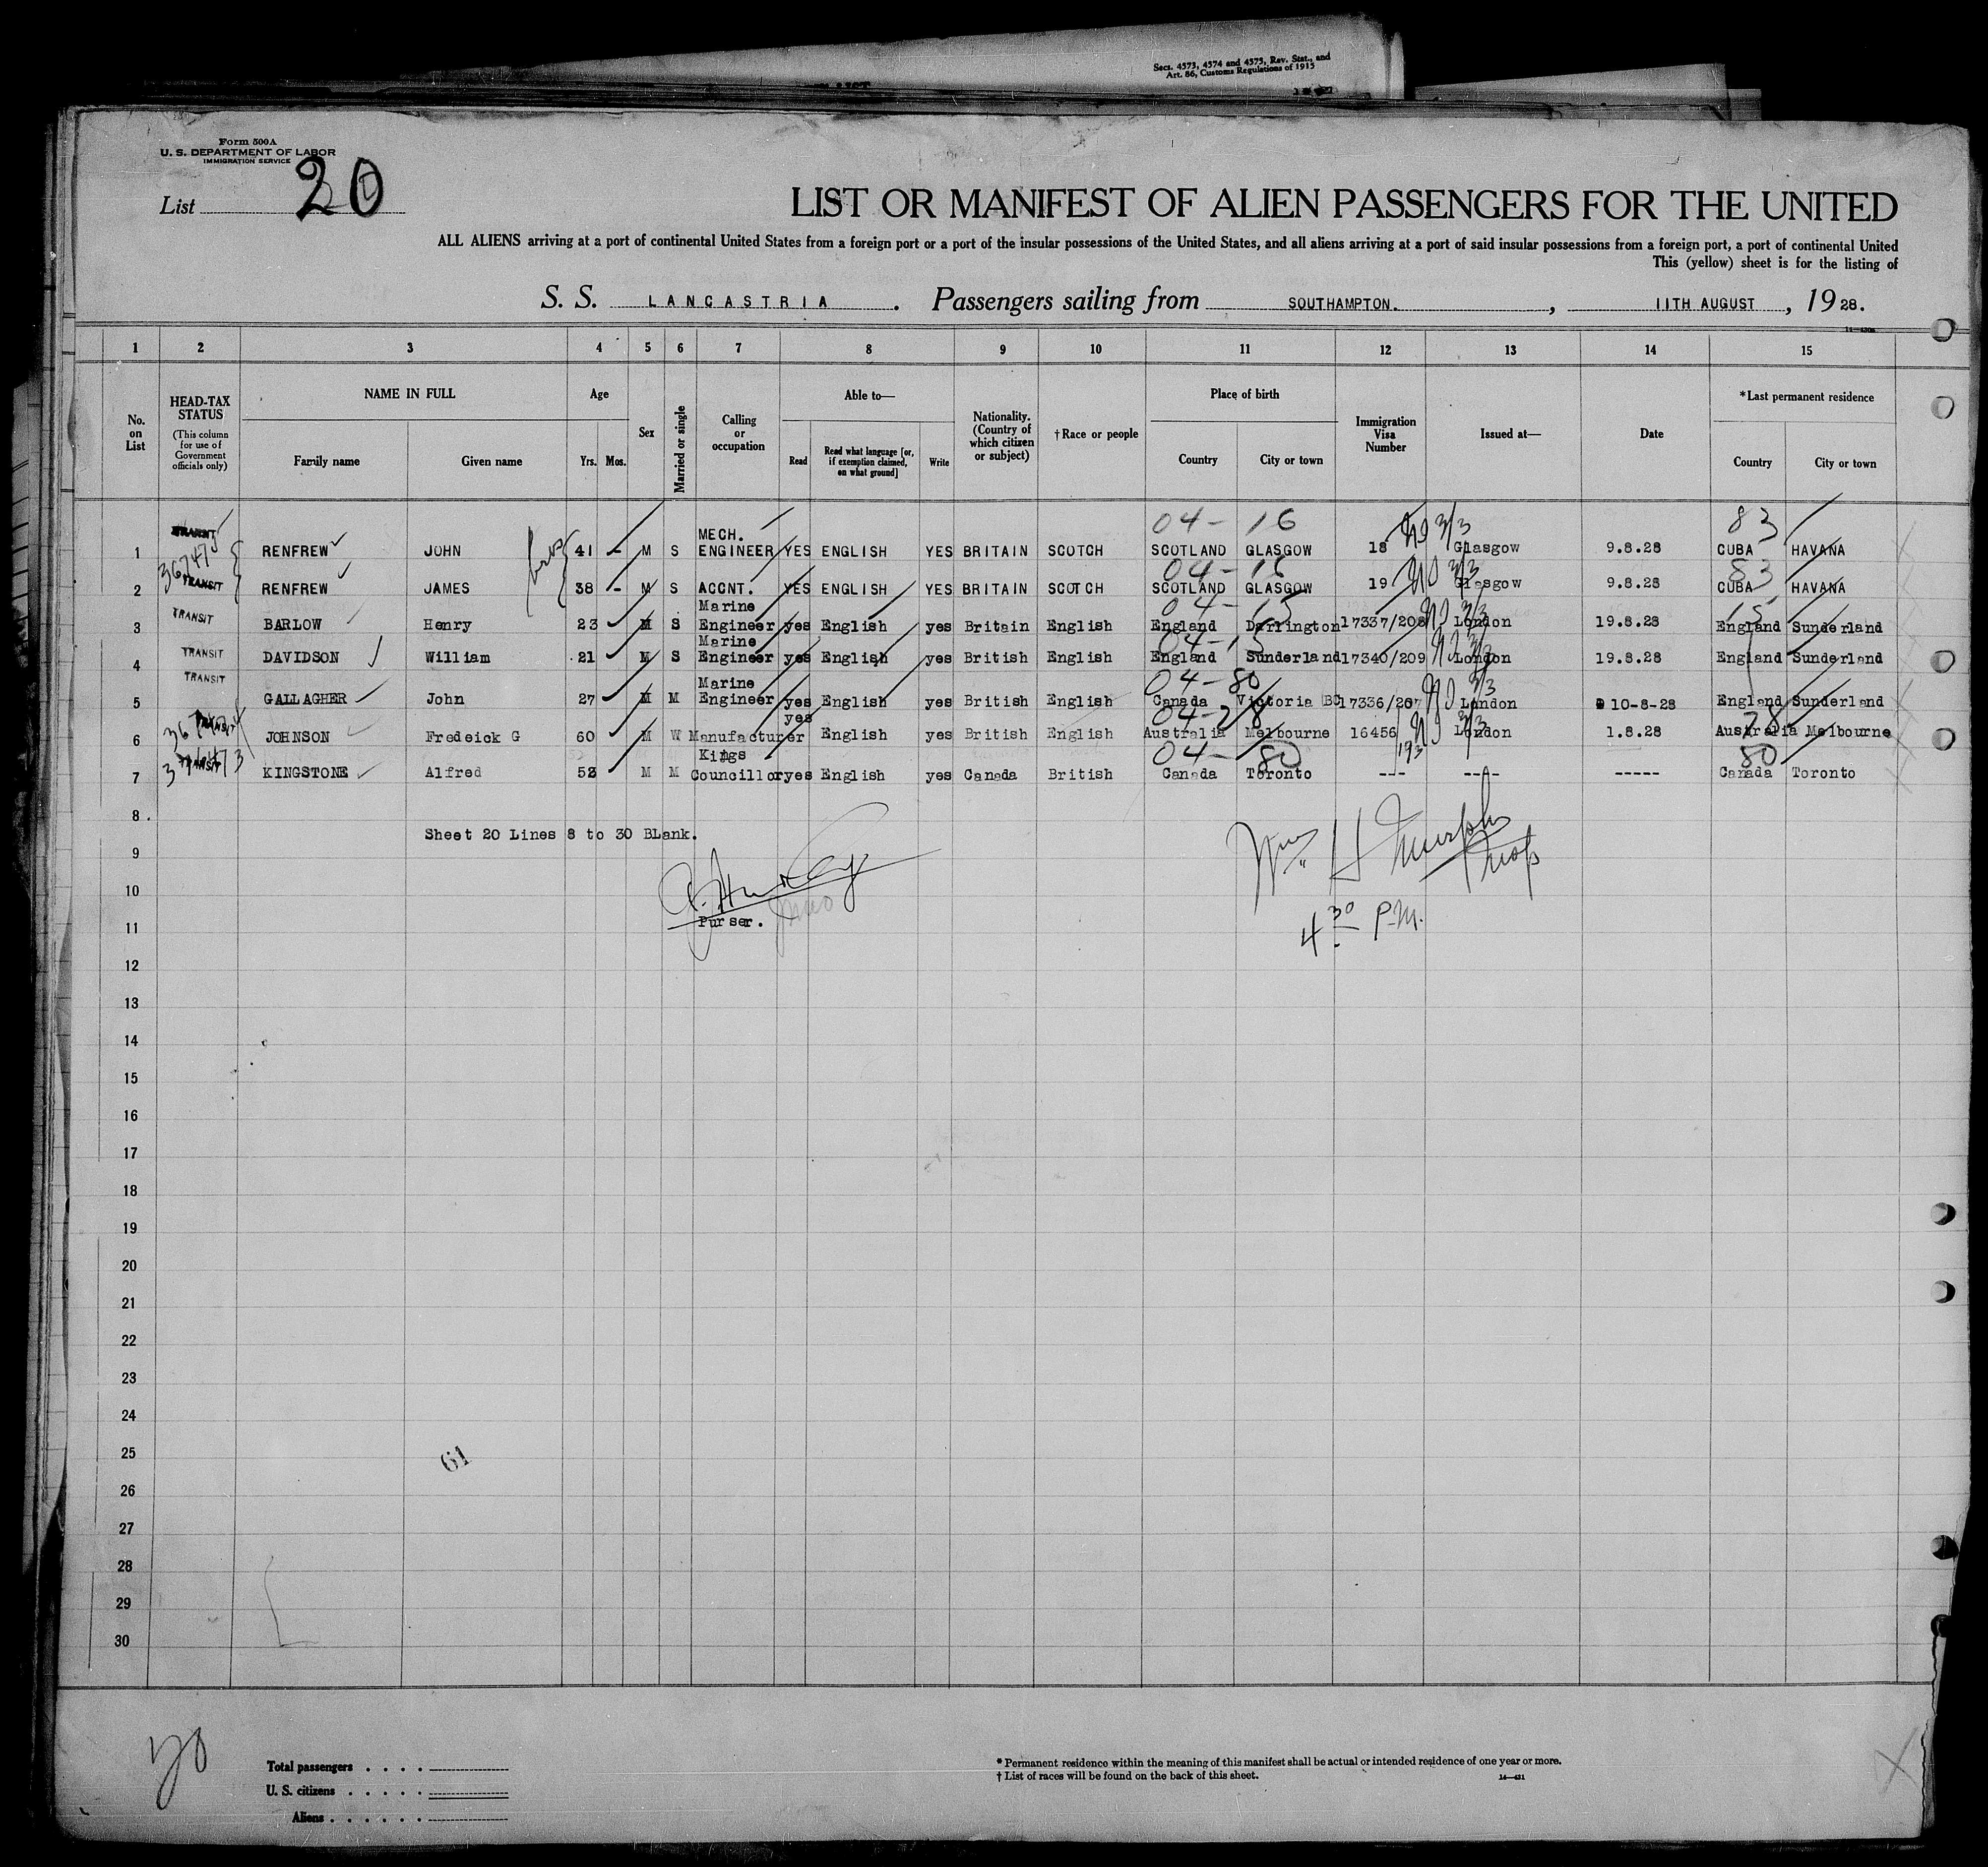 Secs. 4573, 4574 and 4575, Rev. Stat., and
Art. 86, Customs Regulations of 1915
Form 500A
U. S. DEPARTMENT OF LABOR
IMMIGRATION SERVICE
List 20
LIST OR MANIFEST OF ALIEN PASSENGERS FOR THE UNITED
ALL ALIENS arriving at a port of continental United States from a foreign port or a port of the insular possessions of the United States, and all aliens arriving at a port of said insular possessions from a foreign port, a port of continental United
This (yellow) sheet is for the listing of
S. S. LANCASTRIA. Passengers sailing from SOUTHAMPTON., 11TH AUGUST, 1928.
1 2 3 4 5 6 7 8 9 10 11 12 13 14 15
No. on List
HEAD-TAX STATUS (This column for use of Government officials only)
NAME IN FULL
Family name Given name
Age
Yrs. Mos.
Sex
Married or single
Calling or occupation
Able to—
Read Read what language [or, if exemption claimed, on what ground] Write
Nationality. (Country of which citizen or subject)
†Race or people
Place of birth
Country City or town
Immigration Visa Number
Issued at—
Date
*Last permanent residence
Country City or town
04- 16 83
1 TRANSIT RENFREW JOHN bros 41 - M S MECH. ENGINEER YES ENGLISH YES BRITAIN SCOTCH SCOTLAND GLASGOW 18 3/3 Glasgow 9.8.28 CUBA HAVANA
367475
04- 16 83
2 TRANSIT RENFREW JAMES 38 - M S ACCNT. YES ENGLISH YES BRITAIN SCOTCH SCOTLAND GLASGOW 19 3/3 Glasgow 9.8.28 CUBA HAVANA
04- 15 15
3 TRANSIT BARLOW Henry 23 M S Marine Engineer yes English yes Britain English England Darrington 17337/208 3/3 London 19.8.28 England Sunderland
04-15
4 TRANSIT DAVIDSON William 21 M S Marine Engineer yes English yes British English England Sunderland 17340/209 London 19.8.28 England Sunderland
04-80
5 TRANSIT GALLAGHER John 27 M M Marine Engineer yes English yes British English Canada Victoria BC 17336/207 3/3 London 10-8-28 England Sunderland
04-28 28
6 TRANSIT JOHNSON Fredeick G 60 M W Manufacturer yes English yes British English Australia Melbourne 16456 3/3 London 1.8.28 Australia Melbourne
193
04- 80 80
7 TRANSIT KINGSTONE Alfred 52 M M Kings Councillor yes English yes Canada British Canada Toronto --- ---- ----- Canada Toronto
8
Sheet 20 Lines 8 to 30 BLank.
9
Wm H Murphy
10
Purser.
11
4 30 P.M.
12
13
14
15
16
17
18
19
20
21
22
23
24
25
61
26
27
28
29
30
Total passengers
U. S. citizens
Aliens
* Permanent residence within the meaning of this manifest shall be actual or intended residence of one year or more.
† List of races will be found on the back of this sheet.